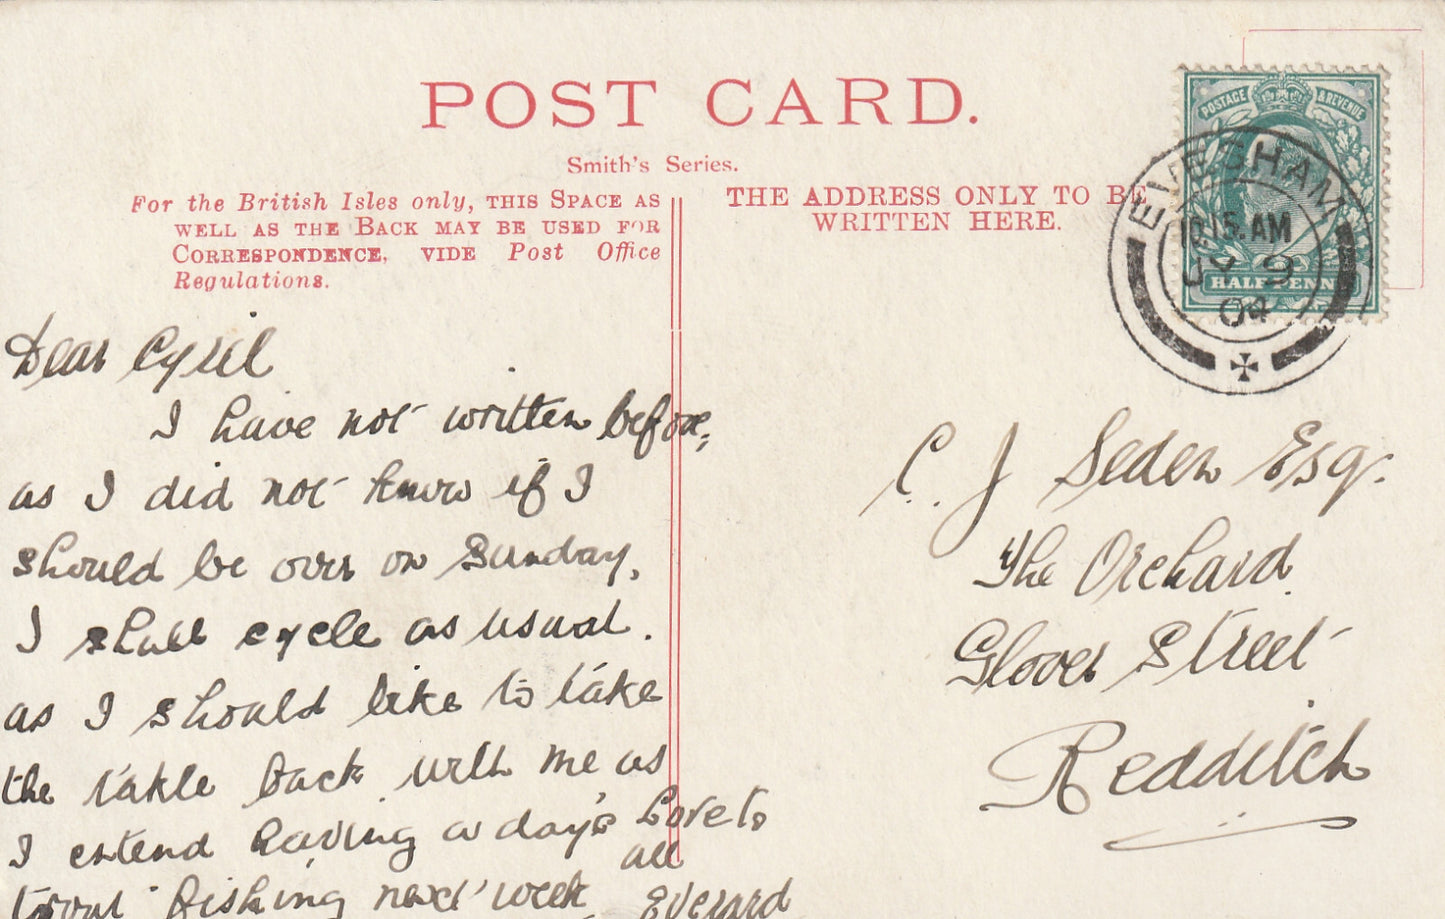 POST CARD.
Smith's Series.
For the British Isles only, THIS SPACE AS
WELL AS THE BACK MAY BE USED FOR
CORRESPONDENCE, VIDE Post Office
Regulations.
THE ADDRESS ONLY TO BE
WRITTEN HERE.
POSTAGE & REVENUE
HALFPENNY
EVESHAM
10.15.AM
9
04
Dear Cyril
I have not written before,
as I did not know if I
should be over on Sunday,
I shall cycle as usual.
as I should like to take
the takle back with me as
I entend having a day's
trout fishing next week
Love to
all
Everard
C. J Seden Esq.
The Orchard
Glover Street
Redditch